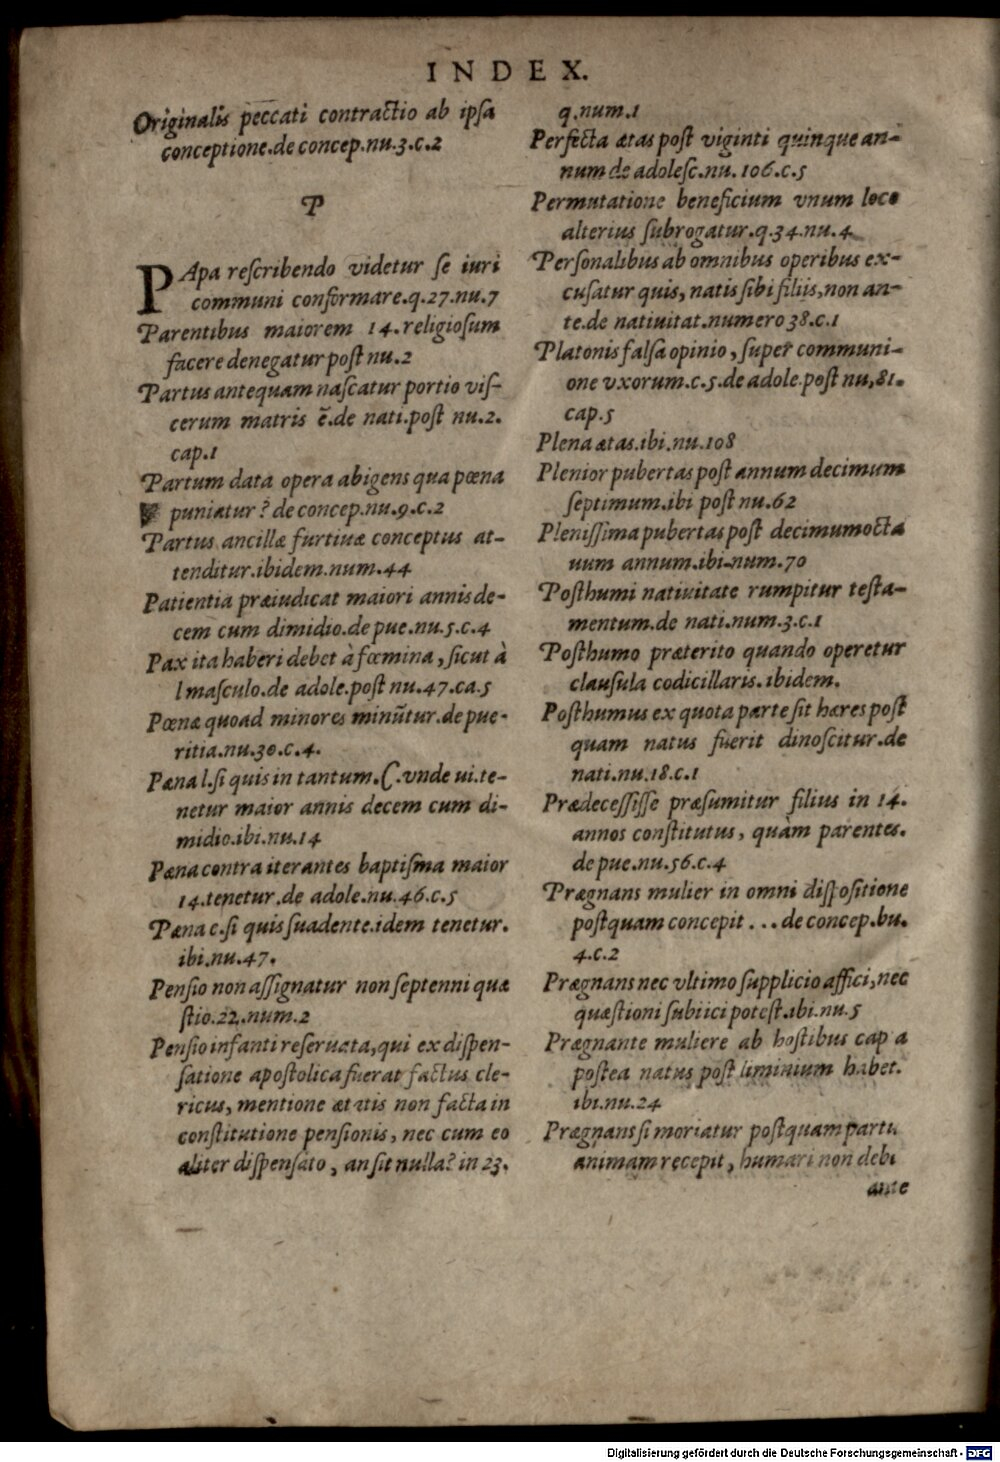 INDEX.
Originalis peccati contractio ab ipsa
conceptione.de concep.nu.3.c.2
P
PApa rescribendo videtur se iuri
communi conformare.q.27.nu.7
Parentibus maiorem 14.religiosum
facere denegatur post nu.2
Partus antequam nascatur portio vis-
cerum matris ē.de nati.post nu.2.
cap.1
Partum data opera abigens qua pœna
puniatur? de concep.nu.9.c.2
Partus ancillæ furtiuæ conceptus at-
tenditur.ibidem.num.44
Patientia præiudicat maiori annis de-
cem cum dimidio.de pue.nu.5.c.4
Pax ita haberi debet à fœmina, sicut à
l masculo.de adole.post nu.47.ca.5
Pœnæ quoad minores minūtur.de pue-
ritia.nu.30.c.4.
Pæna l.si quis in tantum.C.vnde ui.te-
netur maior annis decem cum di-
midio.ibi.nu.14
Pæna contra iterantes baptisma maior
14.tenetur.de adole.nu.46.c.5
Pæna c.si quis suadente.idem tenetur.
ibi.nu.47.
Pensio non assignatur non septenni quæ
stio.22.num.2
Pensio infanti reseruata,qui ex dispen-
satione apostolica fuerat factus cle-
ricus, mentione ætatis non facta in
constitutione pensionis, nec cum eo
aliter dispensato, an sit nulla? in 23.
q.num.1
Perfecta ætas post viginti quinque an-
num de adolesc.nu.106.c.5
Permutatione beneficium vnum loco
alterius subrogatur.q.34.nu.4
Personalibus ab omnibus operibus ex-
cusatur quis, natis sibi filiis,non an-
te.de natiuitat.numero 38.c.1
Platonis falsa opinio, super communi-
one vxorum.c.5.de adole.post nu,81.
cap.5
Plena ætas.ibi.nu.108
Plenior pubertas post annum decimum
septimum.ibi post nu.62
Plenissima pubertas post decimumocta
uum annum.ibi.num.70
Posthumi natiuitate rumpitur testa-
mentum.de nati.num.3.c.1
Posthumo præterito quando operetur
clausula codicillaris.ibidem.
Posthumus ex quota parte sit hæres post
quam natus fuerit dinoscitur.de
nati.nu.18.c.1
Prædecessisse præsumitur filius in 14.
annos constitutus, quàm parentes.
de pue.nu.56.c.4
Prægnans mulier in omni dispositione
postquam concepit ... de concep.bu.
4.c.2
Prægnans nec vltimo supplicio affici,nec
quæstioni subiici potest.ibi.nu.5
Prægnante muliere ab hostibus cap a
postea natus post liminium habet.
ibi.nu.24
Prægnans si moriatur postquam partu
animam recepit, humari non debi
ante
Digitalisierung gefördert durch die Deutsche Forschungsgemeinschaft - DFG